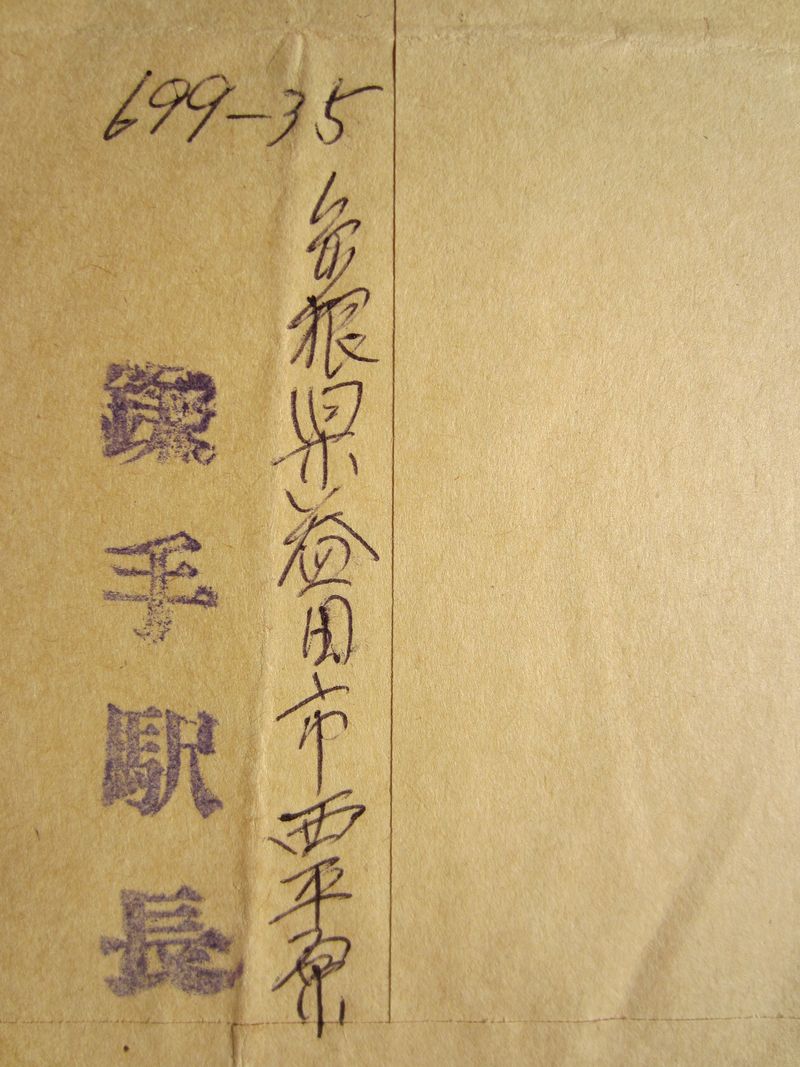 699-35
島根県益田市西平原
鎌手駅長